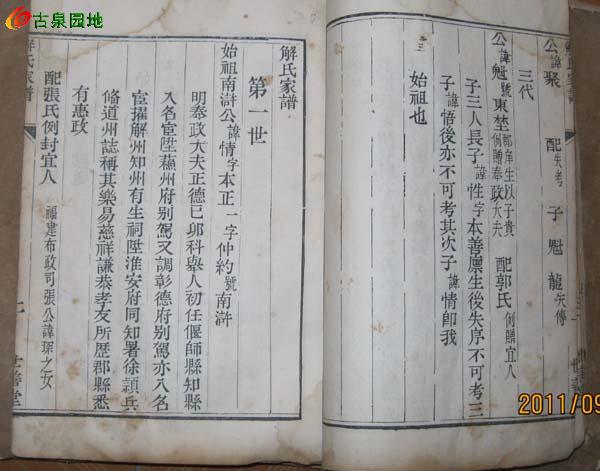 古泉园地
公諱聚 配失考 子魁 龍失傳
三代
公諱魁號東埜郡庠生以子貴例贈奉政大夫 配郭氏例贈宜人
子三人長子諱性字本善廪生後失序不可考三
子諱悟後亦不可考其次子諱情卽我
始祖也
解氏家譜
第一世
始祖南滸公諱情字本正一字仲約號南滸
明奉政大夫正德己卯科舉人初任偃師縣知縣
入名宦陞蘓州府别駕又調彰德府别駕亦入名
宦擢解州知州有生祠陞淮安府同知署徐潁兵
俻道州誌稱其樂易慈祥謙恭孝友所歴郡縣悉
有惠政
配張氏例封宜人 福建布政司張公諱琛之女
解氏家譜
2011/09